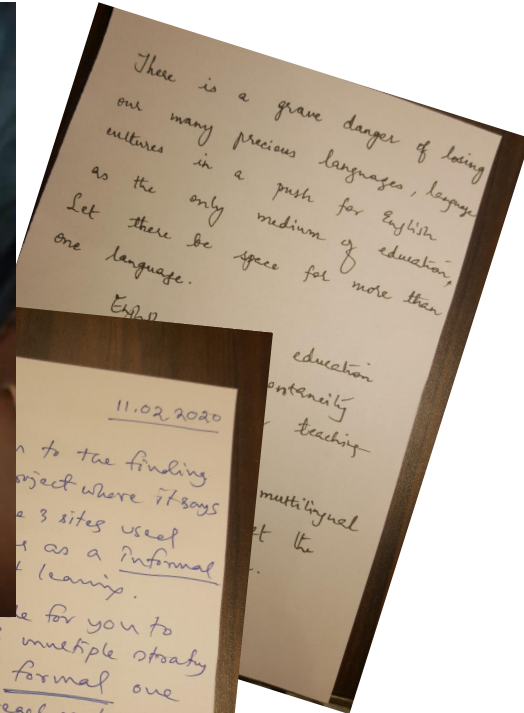 There is a grave danger of losing
our many precious languages, language
cultures in a push for English
as the only medium of education,
Let there be space for more than
one language.
education
teaching
multilingual
the
11.02.2020
to the finding
where it says
3 sites used
as a informal
for you to
multiple
formal one